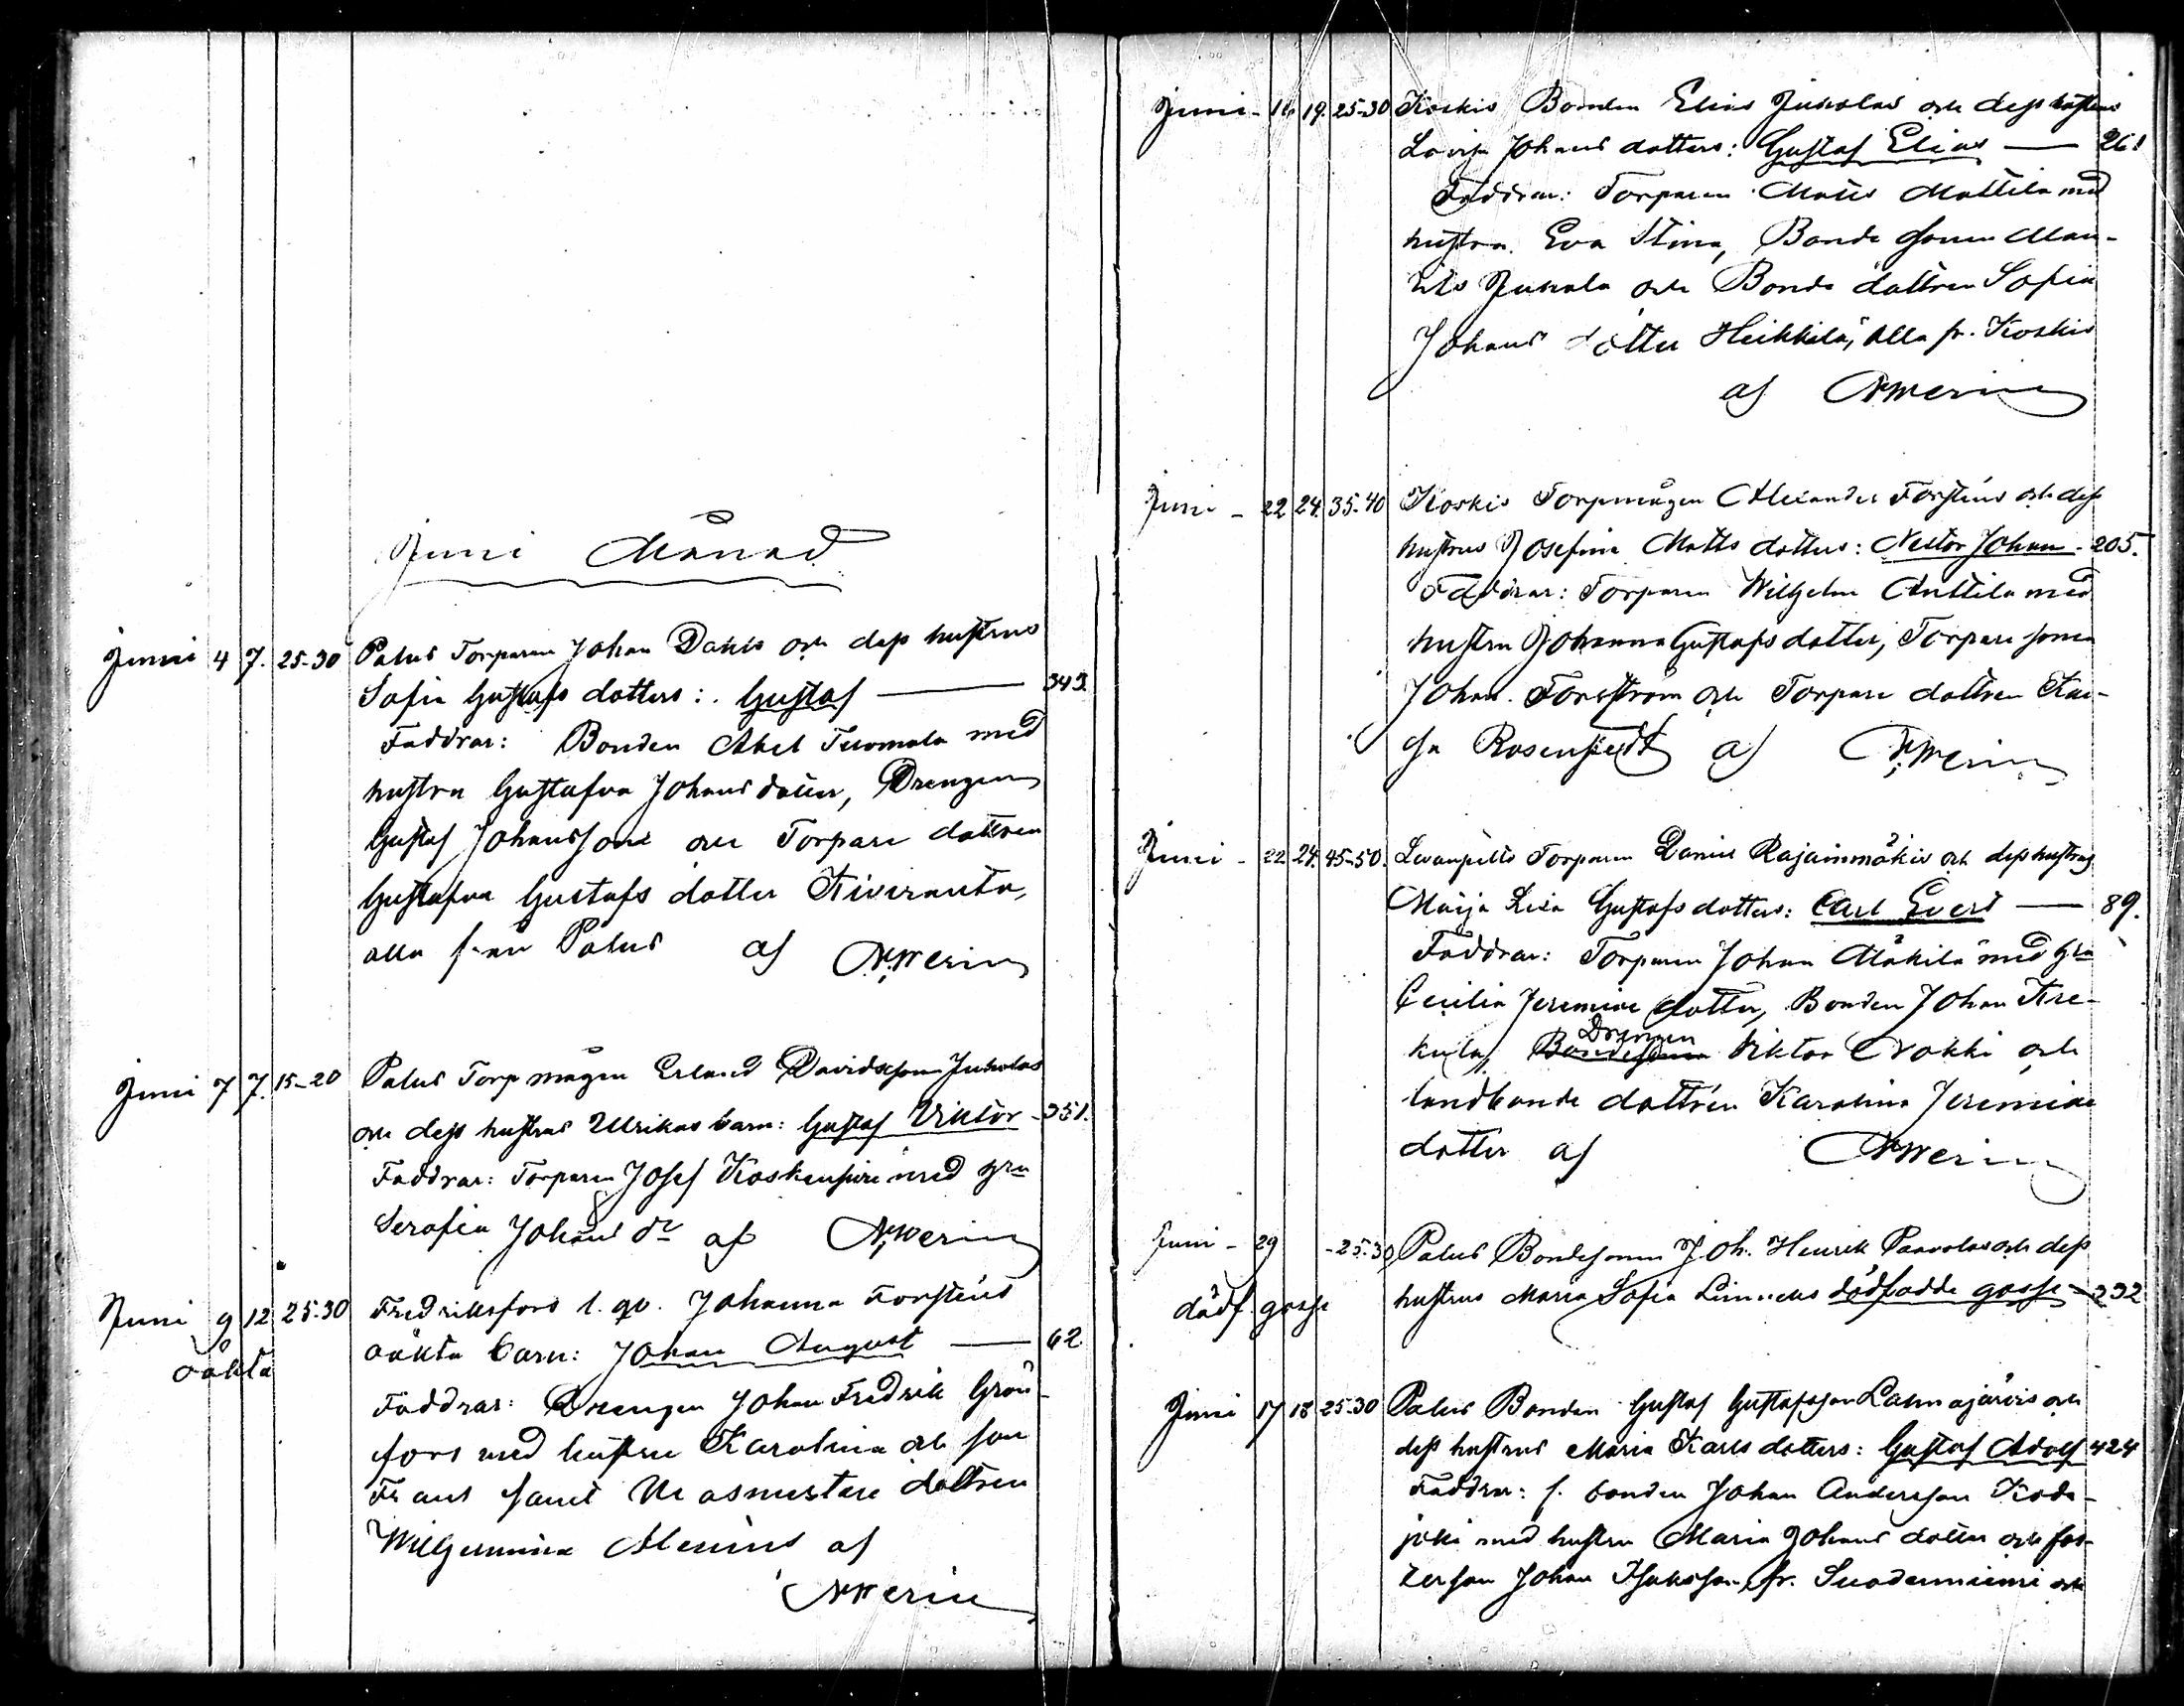 Juni Månad
Juni 4 7. 25-30 Palus Torparen Johan Dahls och dess hustrus
Sofia Gustafs dotters: Gustaf — 343.
Faddrar: Bonden Abel Tuomola med
hustru Gustafva Johans dotter, Drengen
Gustaf Johansson och Torpare dottren
Gustafva Gustafs dotter Kiviranta,
alla från Palus af
Juni 7 7. 15-20 Palus Torpmågen Erland Davidsson Juholas
och dess hustrus Ulrikas barn: Gustaf Viktor - 351.
Faddrar: Torparen Josef med
Serafia Johans dr af
Juni 9 12 25-30 Fredriksfors Johanna Forsténs
oäkta
oäkta barn: Johan August — 62
Faddrar: Drengen Johan Fredrik Grön-
fors med hustru Karolina och son
Frans samt Masmästare dottren
Wilhelmina Alenius af
Juni - 16 19. 25-30 Koskis Bonden Elias Juholas och dess hustrus
Lovisa Johans dotters: Gustaf Elias — 261
Faddrar: Torparen Matts Mattila med
hustru Eva Stina, Bonde sonen Man-
Juhola och Bonde dottren Sofia
Johans dotter Heikkilä, alla fr. Koskis
af
Juni - 22 24. 35-40 Koskis Torpmågen Alexander Forsténs och dess
hustrus Josefina Matts dotters: Nestor Johan - 205.
Faddrar: Torparen Wilhelm Anttila med
hustru Johanna Gustafs dotter, Torpare sonen
Johan Forsström och Torpare dottren Kai-
sa af
Juni - 22 24. 45-50. Levanpelto Torparen Daniel Rajainmäkis och dess hustrus
Maija Lisa Gustafs dotters: Carl Evert — 89.
Faddrar: Torparen Johan Mäkilä med
Cecilia Jeremiae dotter, Bonden Johan Kre-
kula, Bondesonen Drengen Viktor Nokki och
landbonde dottren Karolina Jeremiae
dotter af
Juni - 29 - 25-30 Palus Bondesonen Joh. Henrik Paavolas och dess
dödf. gosse
hustrus Maria Sofia dödfödde gosse - 232
Juni 17 18 25-30 Palus Bonden Gustaf Gustafsson Lahnajärvis och
dess hustrus Maria Karls dotters: Gustaf Adolf 424
Faddrar: f. bonden Johan Andersson Koda-
joki med hustru Maria Johans dotter och fos-
terson Johan Isaksson, fr. Suodenniemi och